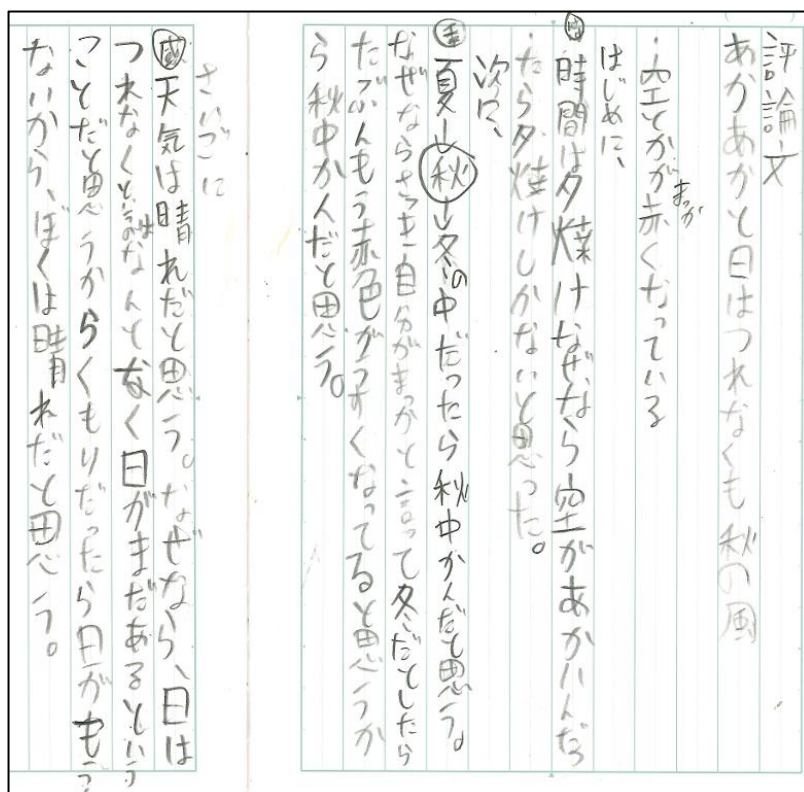 評論文
あかあかと日はつれなくも秋の風
・空とかが赤くなっている
まっか
はじめに、
時間は夕焼けなぜなら空があかいんだ
ったら夕焼けしかないと思った。
次に、
夏→秋→冬の中だったら秋中かんだと思う。
なぜならさっき自分がまっかと言って冬だとしたら
たぶんもう赤色がうすくなってると思うか
ら秋中かんだと思う。
さいごに
天気は晴れだと思う。なぜなら、日は
つれなくというのはなんとなく日がまだあるという
ことだと思うからくもりだったら日がもう
ないから、ぼくは晴れだと思う。